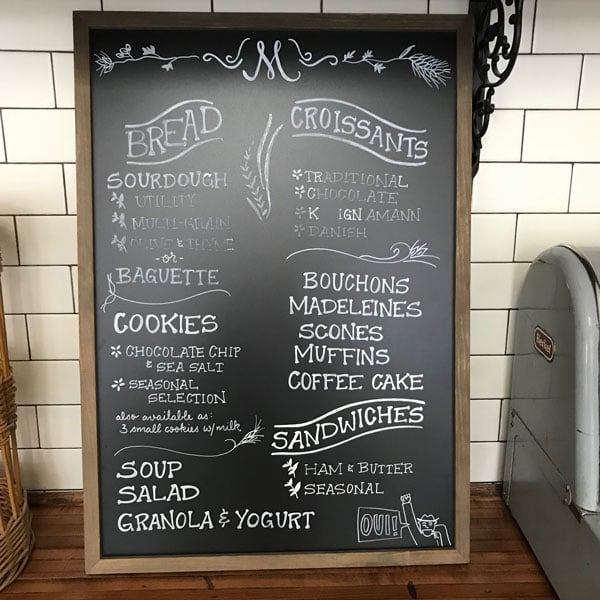 M
BREAD
SOURDOUGH
UTILITY
MULTI-GRAIN
OLIVE & THYME
-or-
BAGUETTE
COOKIES
CHOCOLATE CHIP
& SEA SALT
SEASONAL
SELECTION
also available as:
3 small cookies w/milk
SOUP
SALAD
GRANOLA & YOGURT
CROISSANTS
TRADITIONAL
CHOCOLATE
K IGN AMANN
DANISH
BOUCHONS
MADELEINES
SCONES
MUFFINS
COFFEE CAKE
SANDWICHES
HAM & BUTTER
SEASONAL
OUI!
Berkel